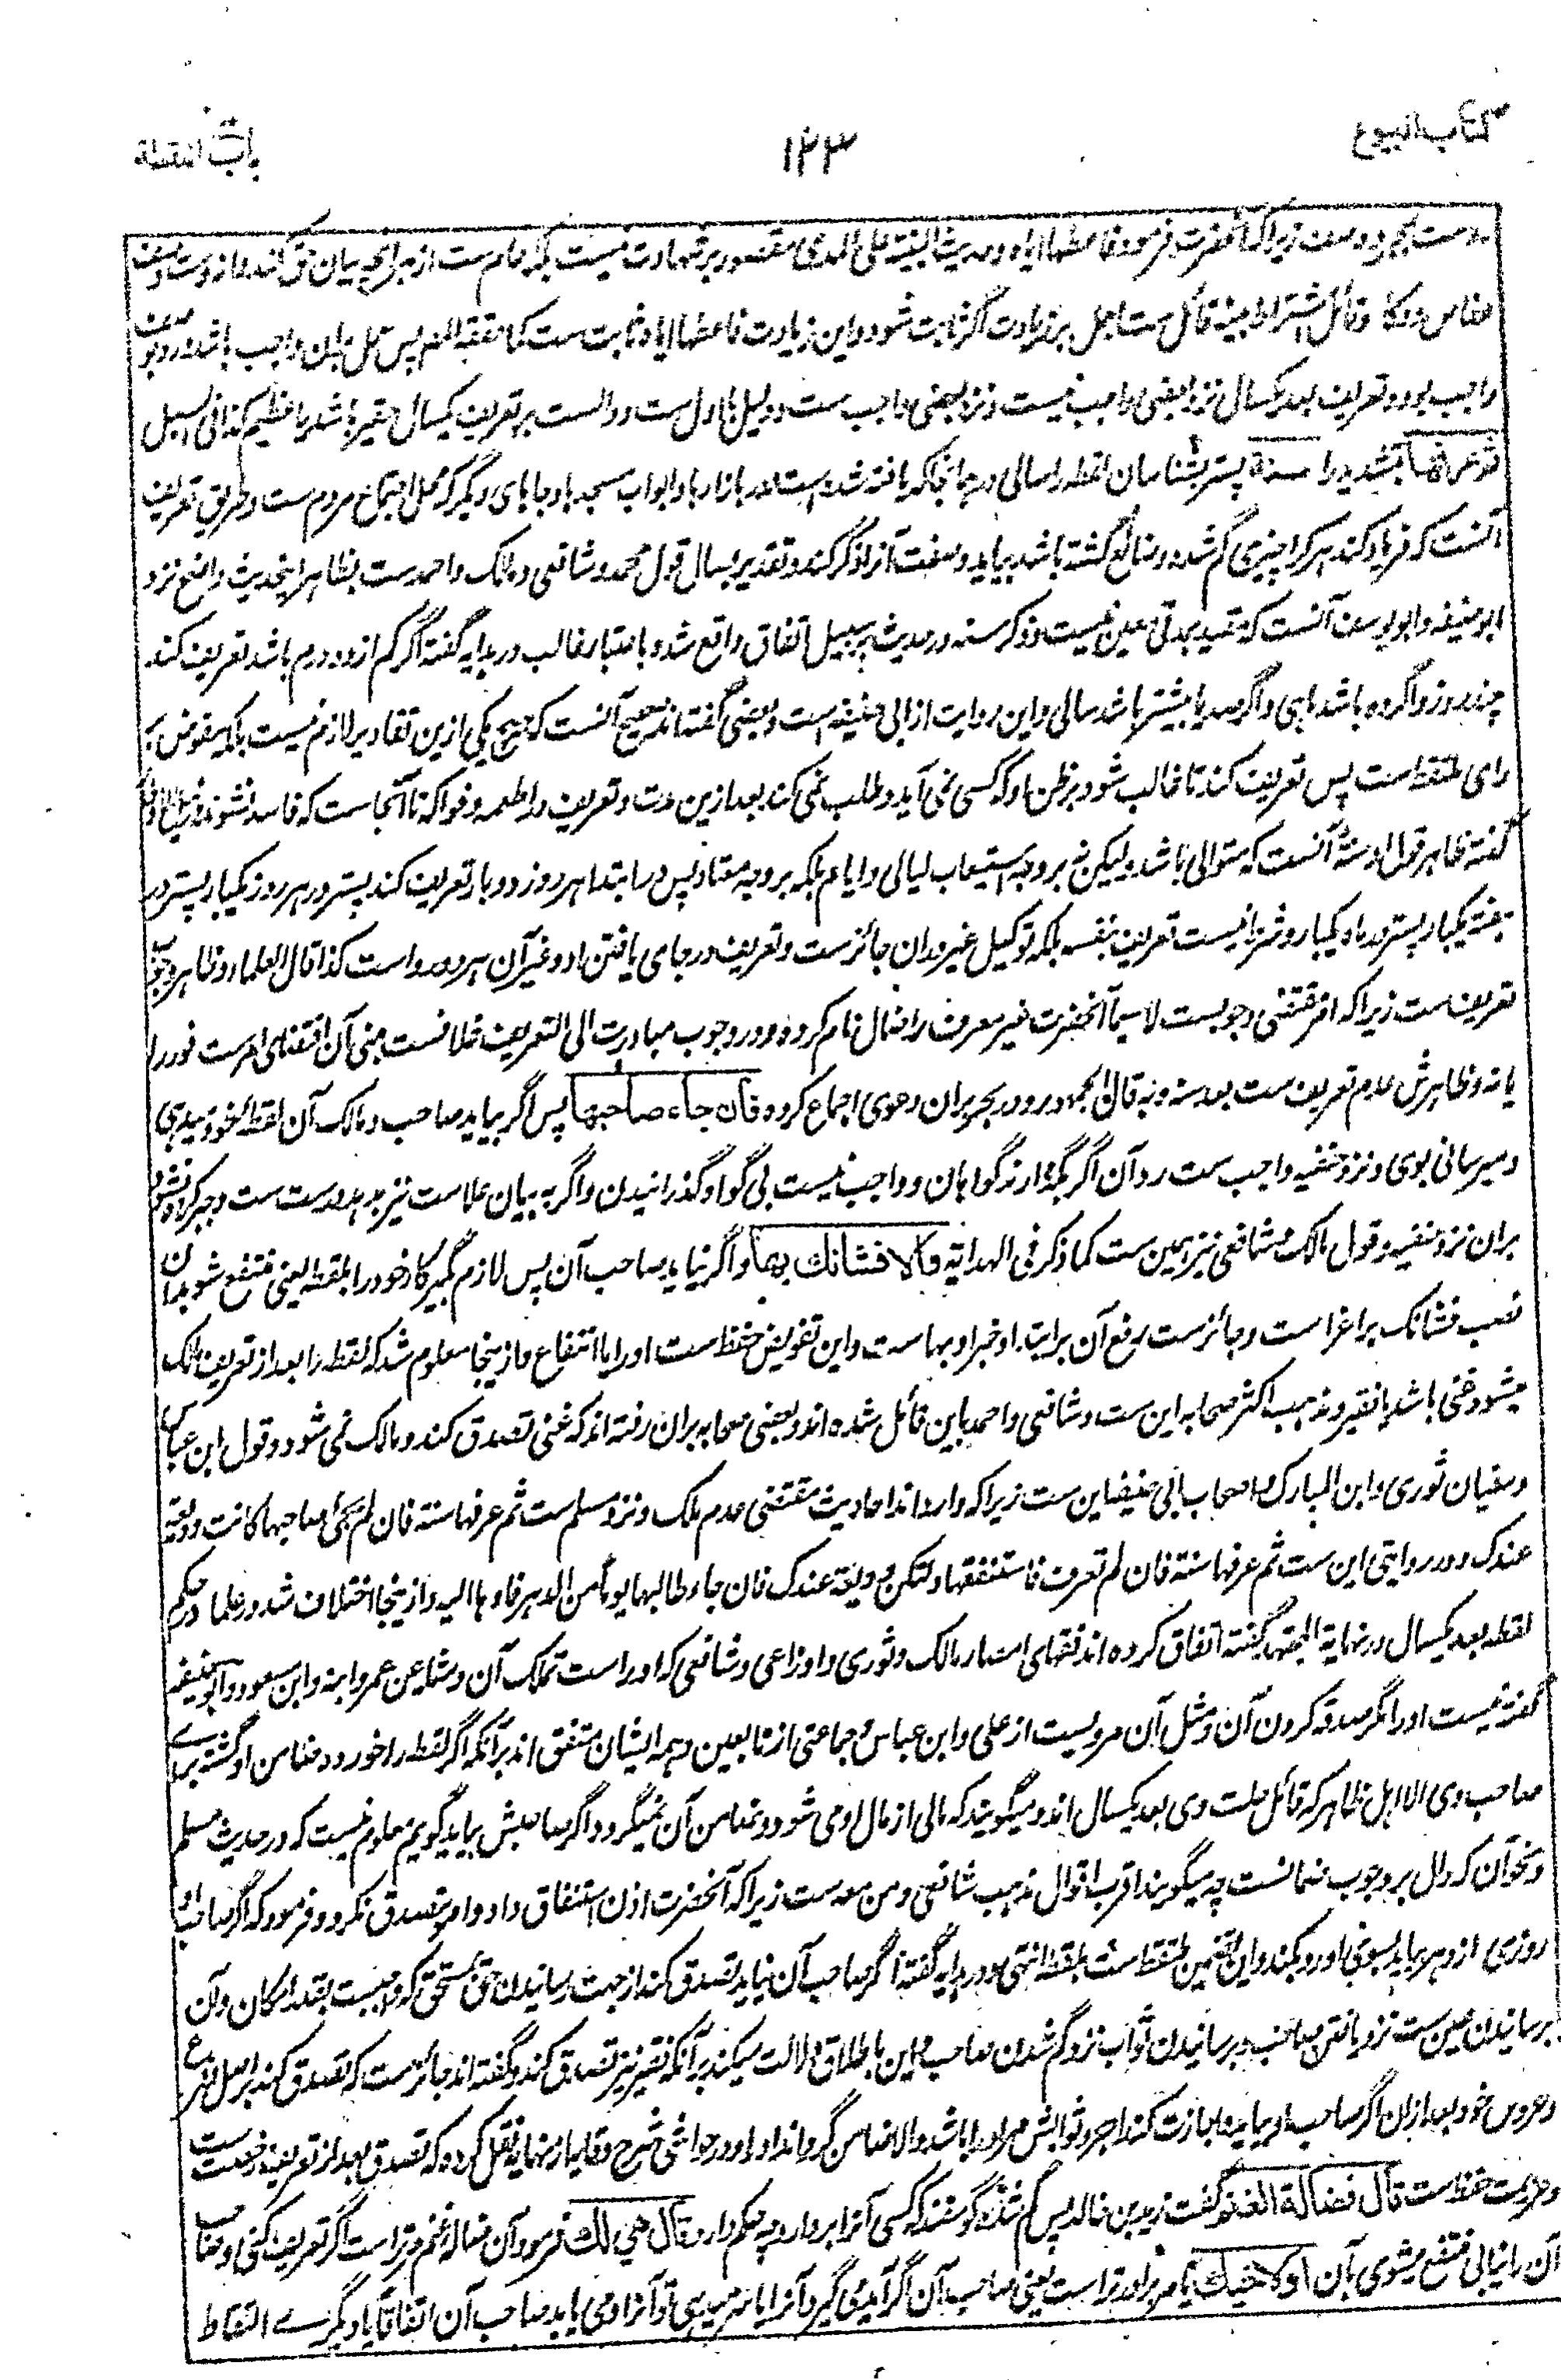 کتاب البیوع
۱۲۳
باب اللقطة
ست بمجرد وصف زیراکه آنحضرت فرمود فاعطها ایاه و حدیث البینة علی المدعی مقصور بر شهادت نیست بلکه عام ست از هر انچه بیان حق کند و از وست وصف
عفاص و وکا و قائل اشتراط بینه قائل ست بعمل بر زیادت اگر ثابت شود و این زیادت فاعطها ایاه ثابت ست کما حققه پس عمل بان واجب باشد و رد بوصف
واجب بود و تعریف بعد یکسال نزد بعضی واجب نیست و نزد بعضی واجب ست و دلیل اول ست و دالست بر تعریف یکسال حقیر باشد یا عظیم کذا فی السبل
ثم عرفها بتشدید را سنة پستر بشناسان لقطه را سالی در جائیکه یافته شده است و در بازارها و ابواب مسجدها و جاهای دیگر که محل اجتماع مردم ست و طریق تعریف
آنست که فریاد کند هر کرا چیزی گم شده و ضائع گشته باشد بیاید و صفت آنرا ذکر کند و تقدیر بسال قول محمد و شافعی و مالک و احمد ست بظاهر اینحدیث و اصح نزد
ابوحنیفه و ابویوسف آنست که مقید بمدتی معین نیست و ذکر سنه در حدیث بر سبیل اتفاق واقع شد و باعتبار غالب در هدایه گفته اگر کم از ده درم باشد تعریف کند
چند روز و اگر ده باشد ماهی و اگر صد یا بیشتر باشد سالی و این روایت از ابی حنیفه است و بعضی گفته اند صحیح آنست که هیچ یکی ازین تقادیر لازم نیست بلکه مفوض بر
رای ملتقط است پس تعریف کند تا غالب شود بر ظن او که کسی نمی آید و طلب نمی کند بعد ازین مدت و تعریف در اطعمه و فواکه تا آنجاست که فاسد نشود
گفته ظاهر قول او سنة آنست که متوالی باشد ولیکن نه بر وجه استیعاب لیالی و ایام بلکه بر وجه معتاد پس در ابتدا هر روز دو بار تعریف کند پستر در هر روز یکبار پستر در
هفته یکبار پستر در ماه یکبار و شرط نیست تعریف بنفسه بلکه توکیل غیر دران جائزست و تعریف در جای یافتن او و غیر آن هر دو رواست کذا قال العلماء و ظاهر وجوب
تعریف ست زیراکه امر مقتضی وجوبست لاسیما آنحضرت غیر معرف را ضال نام کرده و در وجوب مبادرت الی التعریف خلافست مبنی آن اقتضای امرست فور را
یا نه و ظاهرش عدم تعریف ست بعد سنه و به قال الجمهور و در بحر بران دعوی اجماع کرده فان جاء صاحبها پس اگر بیاید صاحب و مالک آن لقطه خود میدهی
و میرسانی بوی و نزد حنفیه واجب ست رد آن اگر بگذارند گواهان و واجب نیست بی گواه گذرانیدن و اگر به بیان علامت نیز بدهد درست ست و جبر کرده نشود
بران نزد حنفیه و قول مالک و شافعی نیز همین ست کما ذکر فی الهدایة والا فشانك بها و اگر نیاید صاحب آن پس لازم گیر کار خود را بلقطه یعنی منتفع شو بدان
نصب فشانک بر اغراست و جائزست رفع آن بر ابتدا و خبر او بهاست و این تفویض حفظ ست او را یا انتفاع و ازینجا معلوم شد که لقطه را بعد از تعریف مالک
میشود غنی باشد یا فقیر و مذهب اکثر صحابه این ست و شافعی و احمد باین قائل شده اند و بعضی صحابه بران رفته اند که غنی تصدق کند و مالک نمی شود و قول ابن عباس
و سفیان ثوری و ابن المبارک و اصحاب ابی حنیفه این ست زیراکه وارد اند احادیث مقتضی عدم ملک و نزد مسلم ست ثم عرفها سنة فان لم یجئ صاحبها کانت ودیعة
عندک و در روایتی این ست ثم عرفها سنة فان لم تعرف فاستنفقها ولتکن ودیعة عندک فان جاء طالبها یوما من الدهر فادها الیه و ازینجا اختلاف شد در علما در حکم
لقطه بعد یکسال در نهایة المجتهد گفته اتفاق کرده اند فقهای امصار مالک و ثوری و اوزاعی و شافعی که او راست تملک آن و مثله عن عمر و ابنه و ابن مسعود و ابوحنیفه
گفته نیست او را مگر صدقه کردن آن و مثل آن مرویست از علی و ابن عباس و جماعتی از تابعین و همه ایشان متفق اند برآنکه اگر لقطه را خورد ضامن او گشته برای
صاحب وی الا اهل ظاهر که قائل حلت وی بعد یکسال اند و میگویند که مالی از مال او می شود و ضامن آن نمیگردد اگر صاحبش بیاید گویم معلوم نیست که در حدیث مسلم
و نحو آن که دال بر وجوب ضمانست چه میگویند اقرب اقوال مذهب شافعی و من معه ست زیراکه آنحضرت اذن استنفاق داد و امر بتصدق نکرد و فرمود که اگر صاحب او
روزی از دهر بیاید بسوی او رد بکند و این تضمین ملتقط است بلقطه انتهی و در هدایه گفته اگر صاحب آن نیاید تصدق کند از جهت رسانیدن حق بمستحق که واجبست بقدر امکان و آن
برسانیدن عین ست نزد یافتن صاحب و برسانیدن ثواب نزد گم شدن صاحب و این باطلاق دلالت میکند برآنکه فقیر نیز تصدق کند و گفته اند جائزست که تصدق کند بر اصل و فرع
و عروس خود بعد ازان اگر صاحب او بیاید اجازت کند اجر و ثوابش مر او را باشد والا ضامن گرداند او را و در حواشی شرح وقایه از نهایه نقل کرده که تصدق بعد از تعریف رخصت ست
و عزیمت حفظ ست قال فضالة الغنم گفت زید بن خالد پس گم شده گوسفند که کسی آنرا بردارد چه حکم دارد قال هي لك فرمود آن ضاله غنم مر تراست اگر تعریف کنی و صاحب
آن را نیابی منتفع میشوی بآن او لاخيك یا مر برادر تراست یعنی صاحب آن اگر آید می گیرد آنرا یا مر میدهی تو آنرا و می یابد صاحب آن اتفاقاً یا دیگرے التقاط